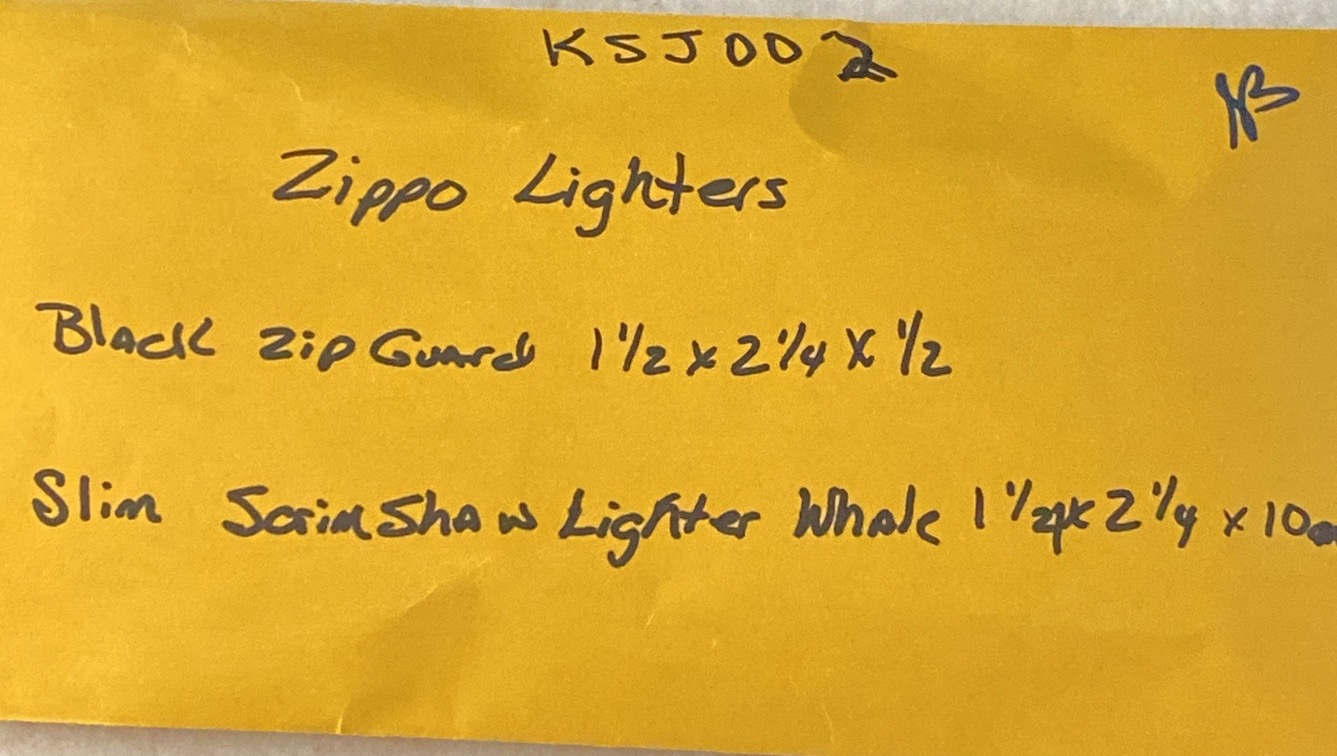 KSJ002
Zippo Lighters
Black Zip Guard 1 1/2 x 2 1/4 x 1/2
Slim Scrimshaw Lighter Whale 1 1/2 x 2 1/4 x 10